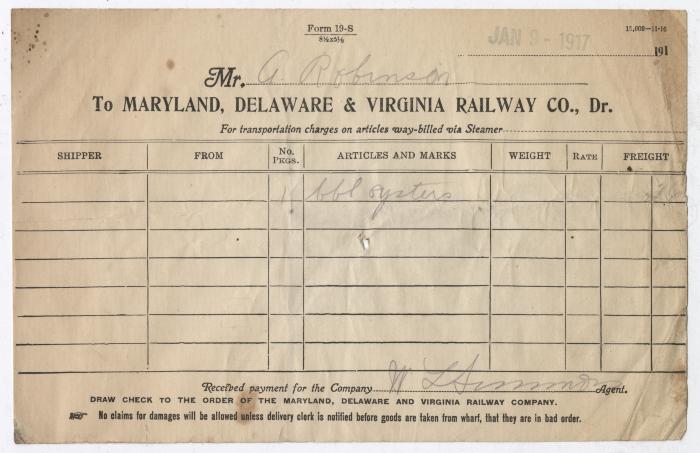 Form 19-S
8½x5½
15,000-11-16
JAN 9 - 1917
191
Mr. A. Robinson
To MARYLAND, DELAWARE & VIRGINIA RAILWAY CO., Dr.
For transportation charges on articles way-billed via Steamer
SHIPPER FROM No. PKGS. ARTICLES AND MARKS WEIGHT RATE FREIGHT
1 bbl oysters
Received payment for the Company W Agent.
DRAW CHECK TO THE ORDER OF THE MARYLAND, DELAWARE AND VIRGINIA RAILWAY COMPANY.
No claims for damages will be allowed unless delivery clerk is notified before goods are taken from wharf, that they are in bad order.